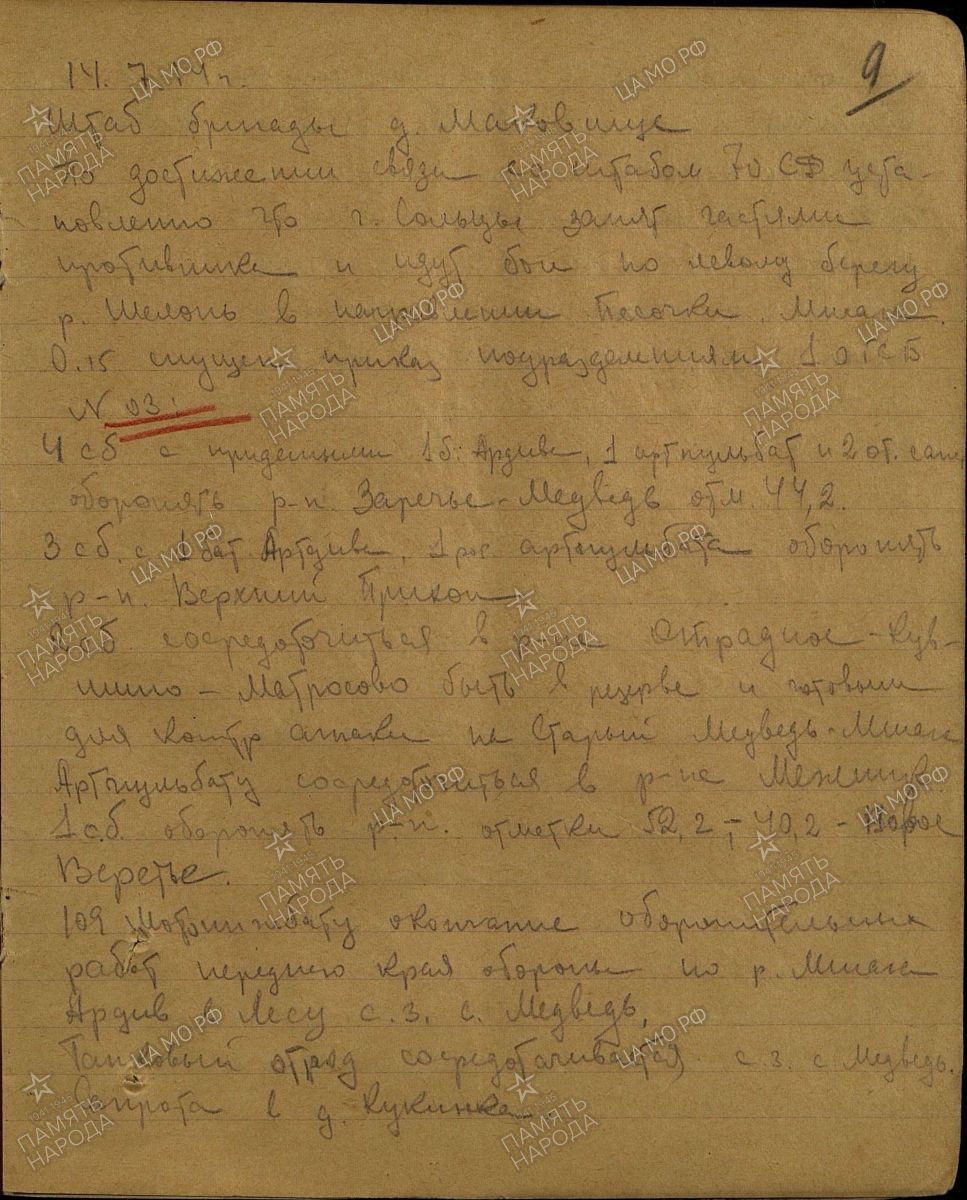 9
14. 7. 41 г.
Штаб бригады д. Маковище
По достижении связи со штабом 70 СД уста-
новленно что г. Сольцы занят частями
противника и идут бои по левому берегу
р. Шелонь в направлении Песочки, Мшага.
0.15 спущен приказ подразделениям 1
N 03:
4 сб с приданными 1 б: Ардива, 1 артпульбат и 2 от. сапер
оборонять р-н Заречье - Медведь отм. 44,2.
3 сб. с 1 бат Артдива, 1 рос артпульбата оборонять
р-н. Верхний Прихон
2 сб сосредоточиться в р-не Отрадное -
- Матросово быть в резерве и готовым
для контр атаки на Старый Медведь - Мшага
Артпульбату сосредоточиться в р-не
1 с.б. оборонять р-н. отметки 52,2 - 40,2 - Новое
Веретье.
109 Мотоинжбату окончание оборонительных
работ переднего края обороны по р. Мшага
Ардив в Лесу с.з. с. Медведь,
Танковый отряд сосредотачивается с.з. с Медведь.
в д. Кукинка.